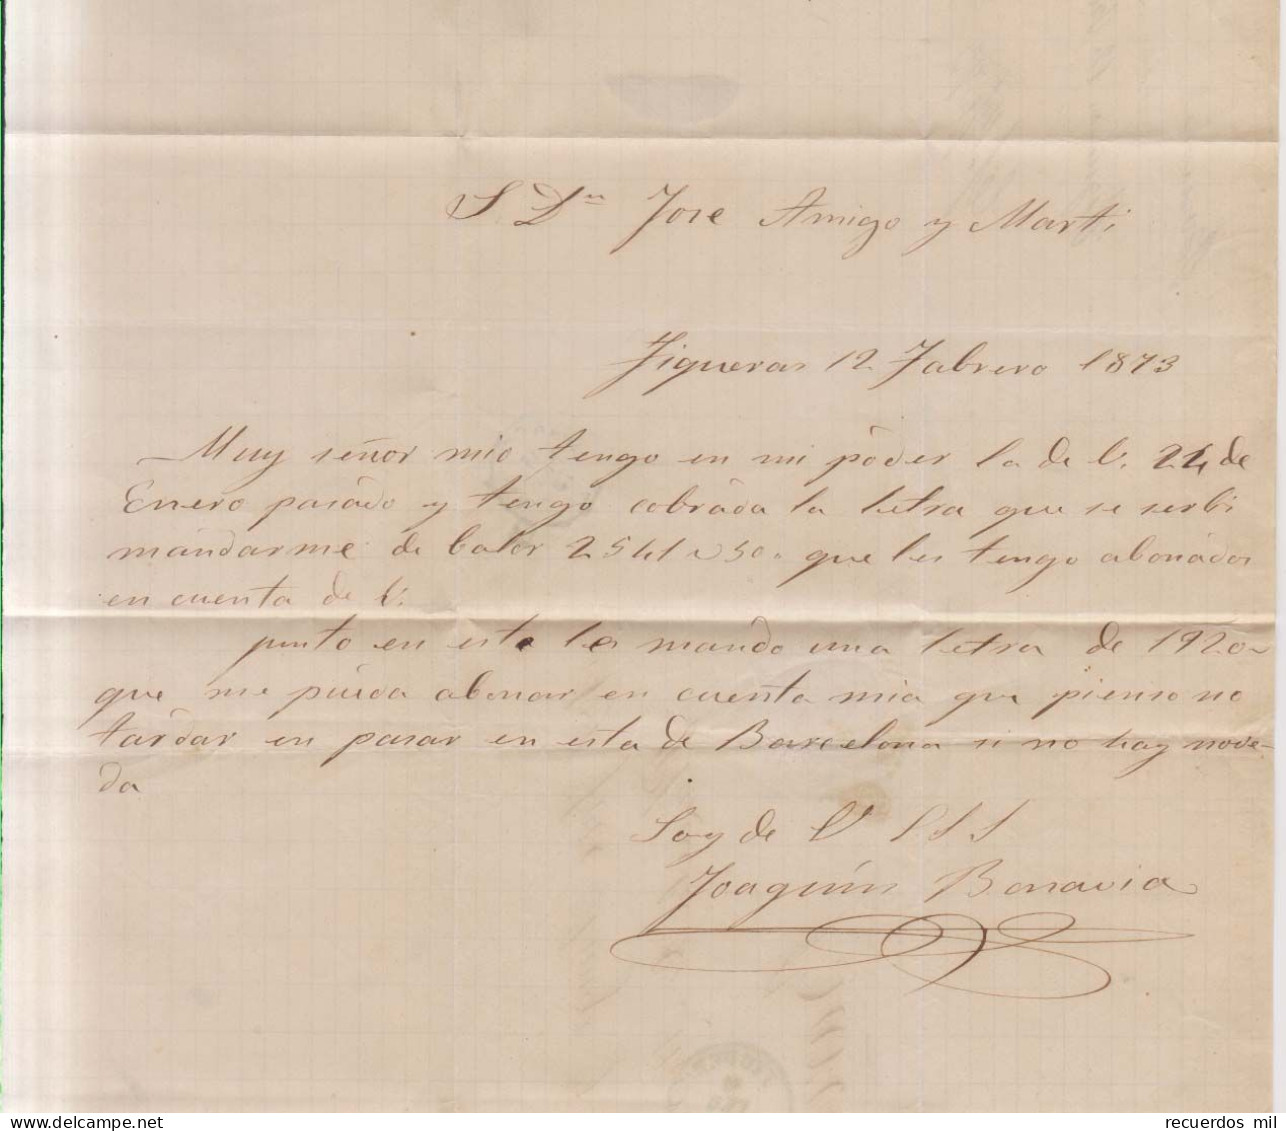 S Dn Jose Amigo y Marti
Figueras 12 Fabrero 1873
Muy señor mio tengo en mi pòder la de V. 24 de
Enero pasàdo y tengo cobràda la letra que se serbi
màndarme de balor 2541 50 que les tengo abonàdos
en cuenta de V.
junto en este les mando una letra de 1920
que me puéda abonar en cuenta mia que pienso no
tardar en pasar en esta de Barcelona si no hay nove-
da
Soy de V S S S
Joaquín Bonavia
recuerdos mil